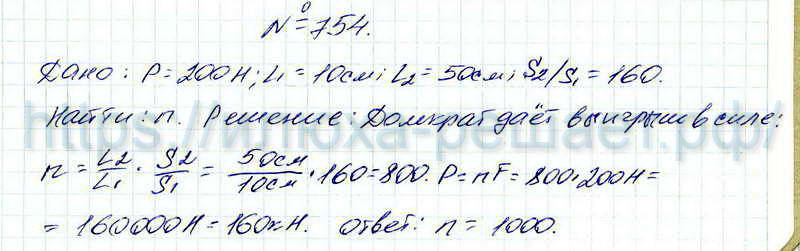 №754.
Дано: P=200Н; L₁=10см; L₂=50см; S₂/S₁=160.
Найти: n. Решение: Домкрат даёт выигрыш в силе:
n = L₂/L₁ · S₂/S₁ = 50см/10см · 160=800. P=nF=800·200Н=
=160000Н=160кН. Ответ: n=1000.